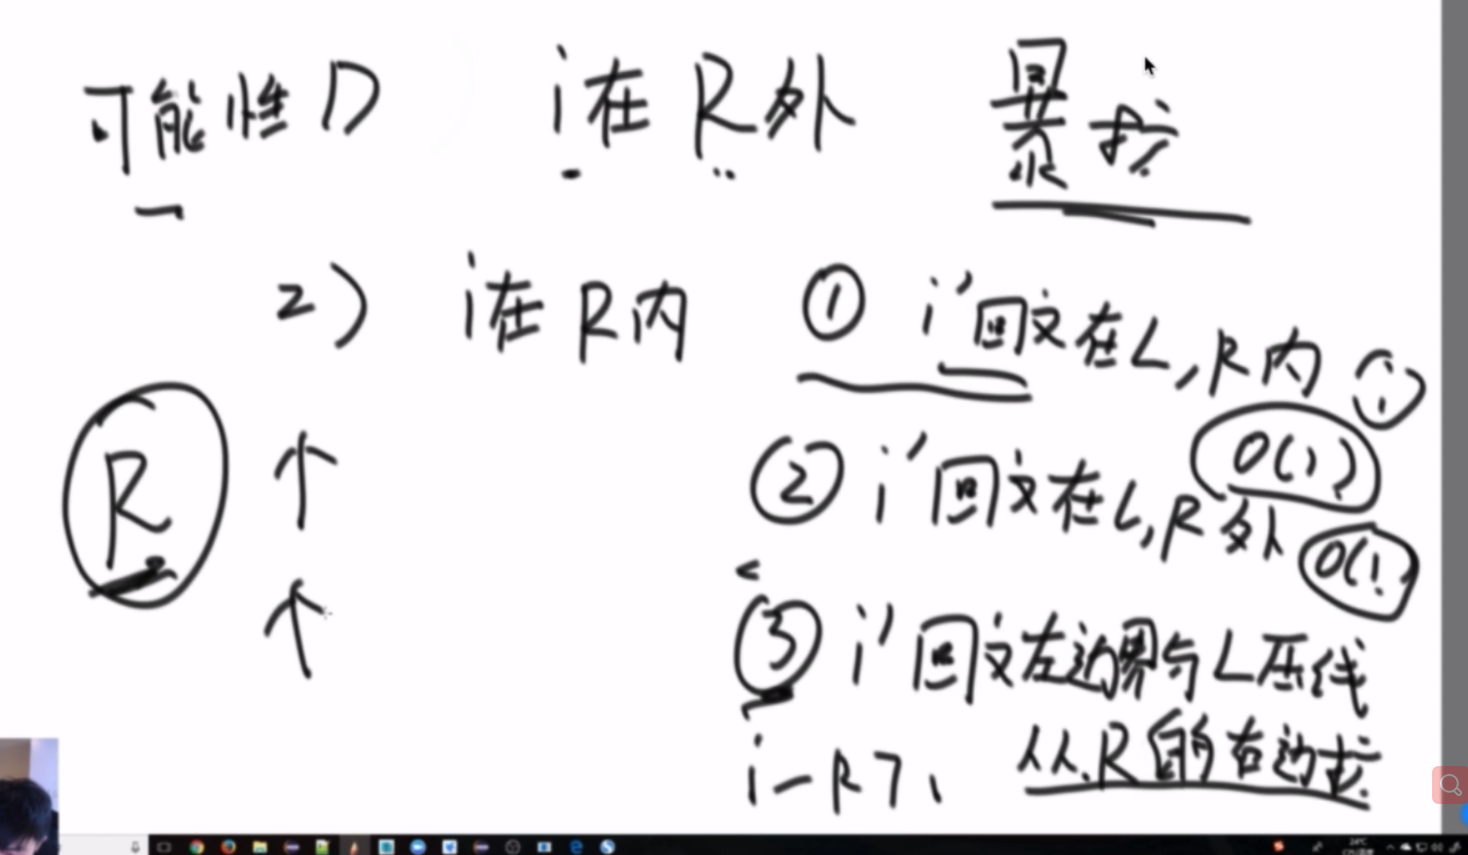 可能性 1) i在R外 暴扩
2) i在R内 ① i'回文在L,R内
O(1)
② i'回文在L,R外 O(1)
R ↑
↑
③ i'回文左边界与L压线
从R的右边扩